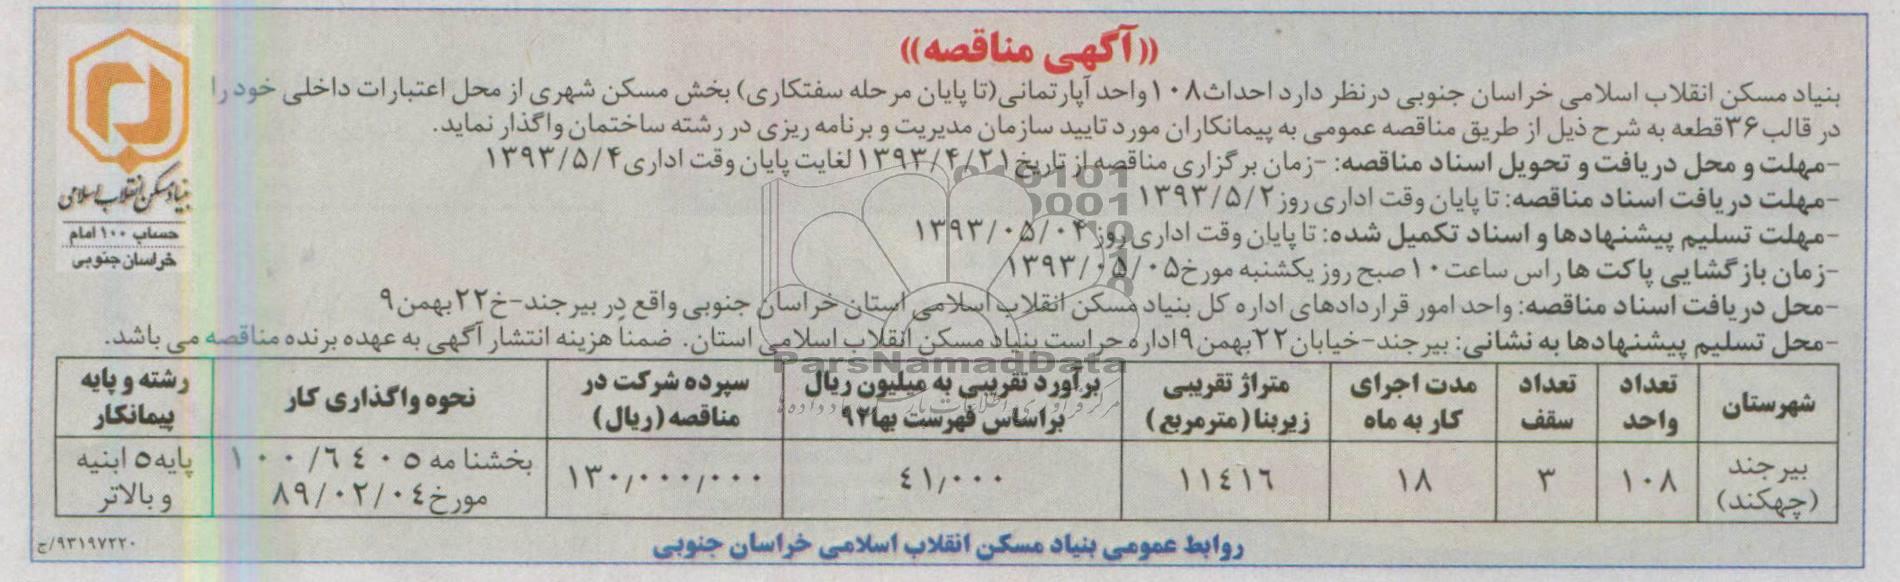 ((آگهی مناقصه))
بنیاد مسکن انقلاب اسلامی خراسان جنوبی درنظر دارد احداث۱۰۸واحد آپارتمانی(تا پایان مرحله سفتکاری) بخش مسکن شهری از محل اعتبارات داخلی خود را
در قالب۳۶قطعه به شرح ذیل از طریق مناقصه عمومی به پیمانکاران مورد تایید سازمان مدیریت و برنامه ریزی در رشته ساختمان واگذار نماید.
-مهلت و محل دریافت و تحویل اسناد مناقصه: -زمان برگزاری مناقصه از تاریخ۱۳۹۳/۴/۲۱ لغایت پایان وقت اداری۱۳۹۳/۵/۴
-مهلت دریافت اسناد مناقصه: تا پایان وقت اداری روز۱۳۹۳/۵/۲
-مهلت تسلیم پیشنهادها و اسناد تکمیل شده: تا پایان وقت اداری روز۱۳۹۳/۰۵/۰۴
-زمان بازگشایی پاکت ها راس ساعت۱۰صبح روز یکشنبه مورخ۱۳۹۳/۰۵/۰۵
-محل دریافت اسناد مناقصه: واحد امور قراردادهای اداره کل بنیاد مسکن انقلاب اسلامی استان خراسان جنوبی واقع در بیرجند-خ۲۲بهمن۹
-محل تسلیم پیشنهادها به نشانی: بیرجند-خیابان۲۲بهمن۹اداره حراست بنیاد مسکن انقلاب اسلامی استان. ضمناً هزینه انتشار آگهی به عهده برنده مناقصه می باشد.
بنیاد مسکن انقلاب اسلامی
حساب ۱۰۰ امام
خراسان جنوبی
ParsNamadData
شهرستان | تعداد واحد | تعداد سقف | مدت اجرای کار به ماه | متراژ تقریبی زیربنا(مترمربع) | برآورد تقریبی به میلیون ریال براساس فهرست بها۹۲ | سپرده شرکت در مناقصه(ریال) | نحوه واگذاری کار | رشته و پایه پیمانکار
بیرجند (چهکند) | ۱۰۸ | ۳ | ۱۸ | ۱۱٤۱٦ | ٤۱/۰۰۰ | ۱۳۰/۰۰۰/۰۰۰ | بخشنامه ۱۰۰/٦٤۰۵ مورخ۸۹/۰۲/۰٤ | پایه۵ ابنیه و بالاتر
روابط عمومی بنیاد مسکن انقلاب اسلامی خراسان جنوبی
۹۳۱۹۷۲۲۰/ج